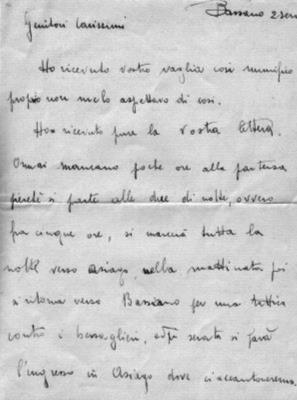 Bassano 2
Genitori carissimi
Ho ricevuto vostro vaglia così
proprio non me lo aspettavo di così.
Ho ricevuto pure la vostra lettera.
Ormai mancano poche ore alla partenza
perché si parte alle due di notte, ovvero
fra cinque ore, si marcerà tutta la
notte verso Asiago, nella mattinata poi
si ritorna verso Bassano per una
contro i bersaglieri, serata si farà
l'ingresso in Asiago dove ci accantoneremo.